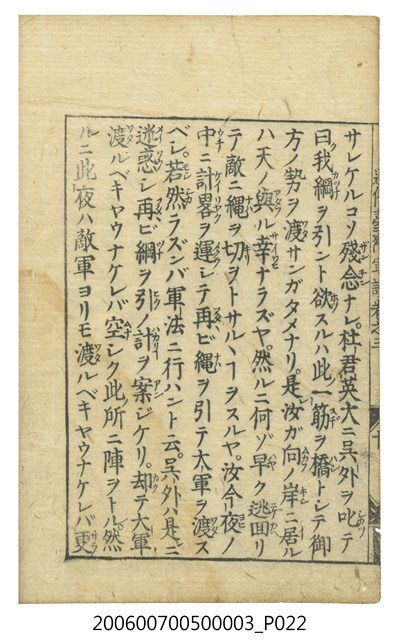 サレケルコソ殘念ナレ。杜君英大ニ呉外ヲ叱テ
曰我綱ヲ引ント欲スルハ此一筋ヲ橋トシテ御
方ノ勢ヲ渡サンガタメナリ。是汝ガ向ノ岸ニ居ル
ハ天ノ與ル幸ナラズヤ。然ルニ何ゾ早ク逃回リ
テ敵ニ縄ヲ切ヲトサル丶ヿヲスルヤ。汝今夜ノ
中ニ計畧ヲ運シテ再ビ縄ヲ引テ大軍ヲ渡ス
ベシ。若然ラズンバ軍法ニ行ハント云。呉外ハ是ニ
迷惑シ再ビ綱ヲ引ノ計ヲ案ジケリ。却テ大軍
渡ルベキヤウナケレバ空シク此所ニ陣ヲトル。然
ルニ此夜ハ敵軍ヨリモ渡ルベキヤウナケレバ更
200600700500003_P022